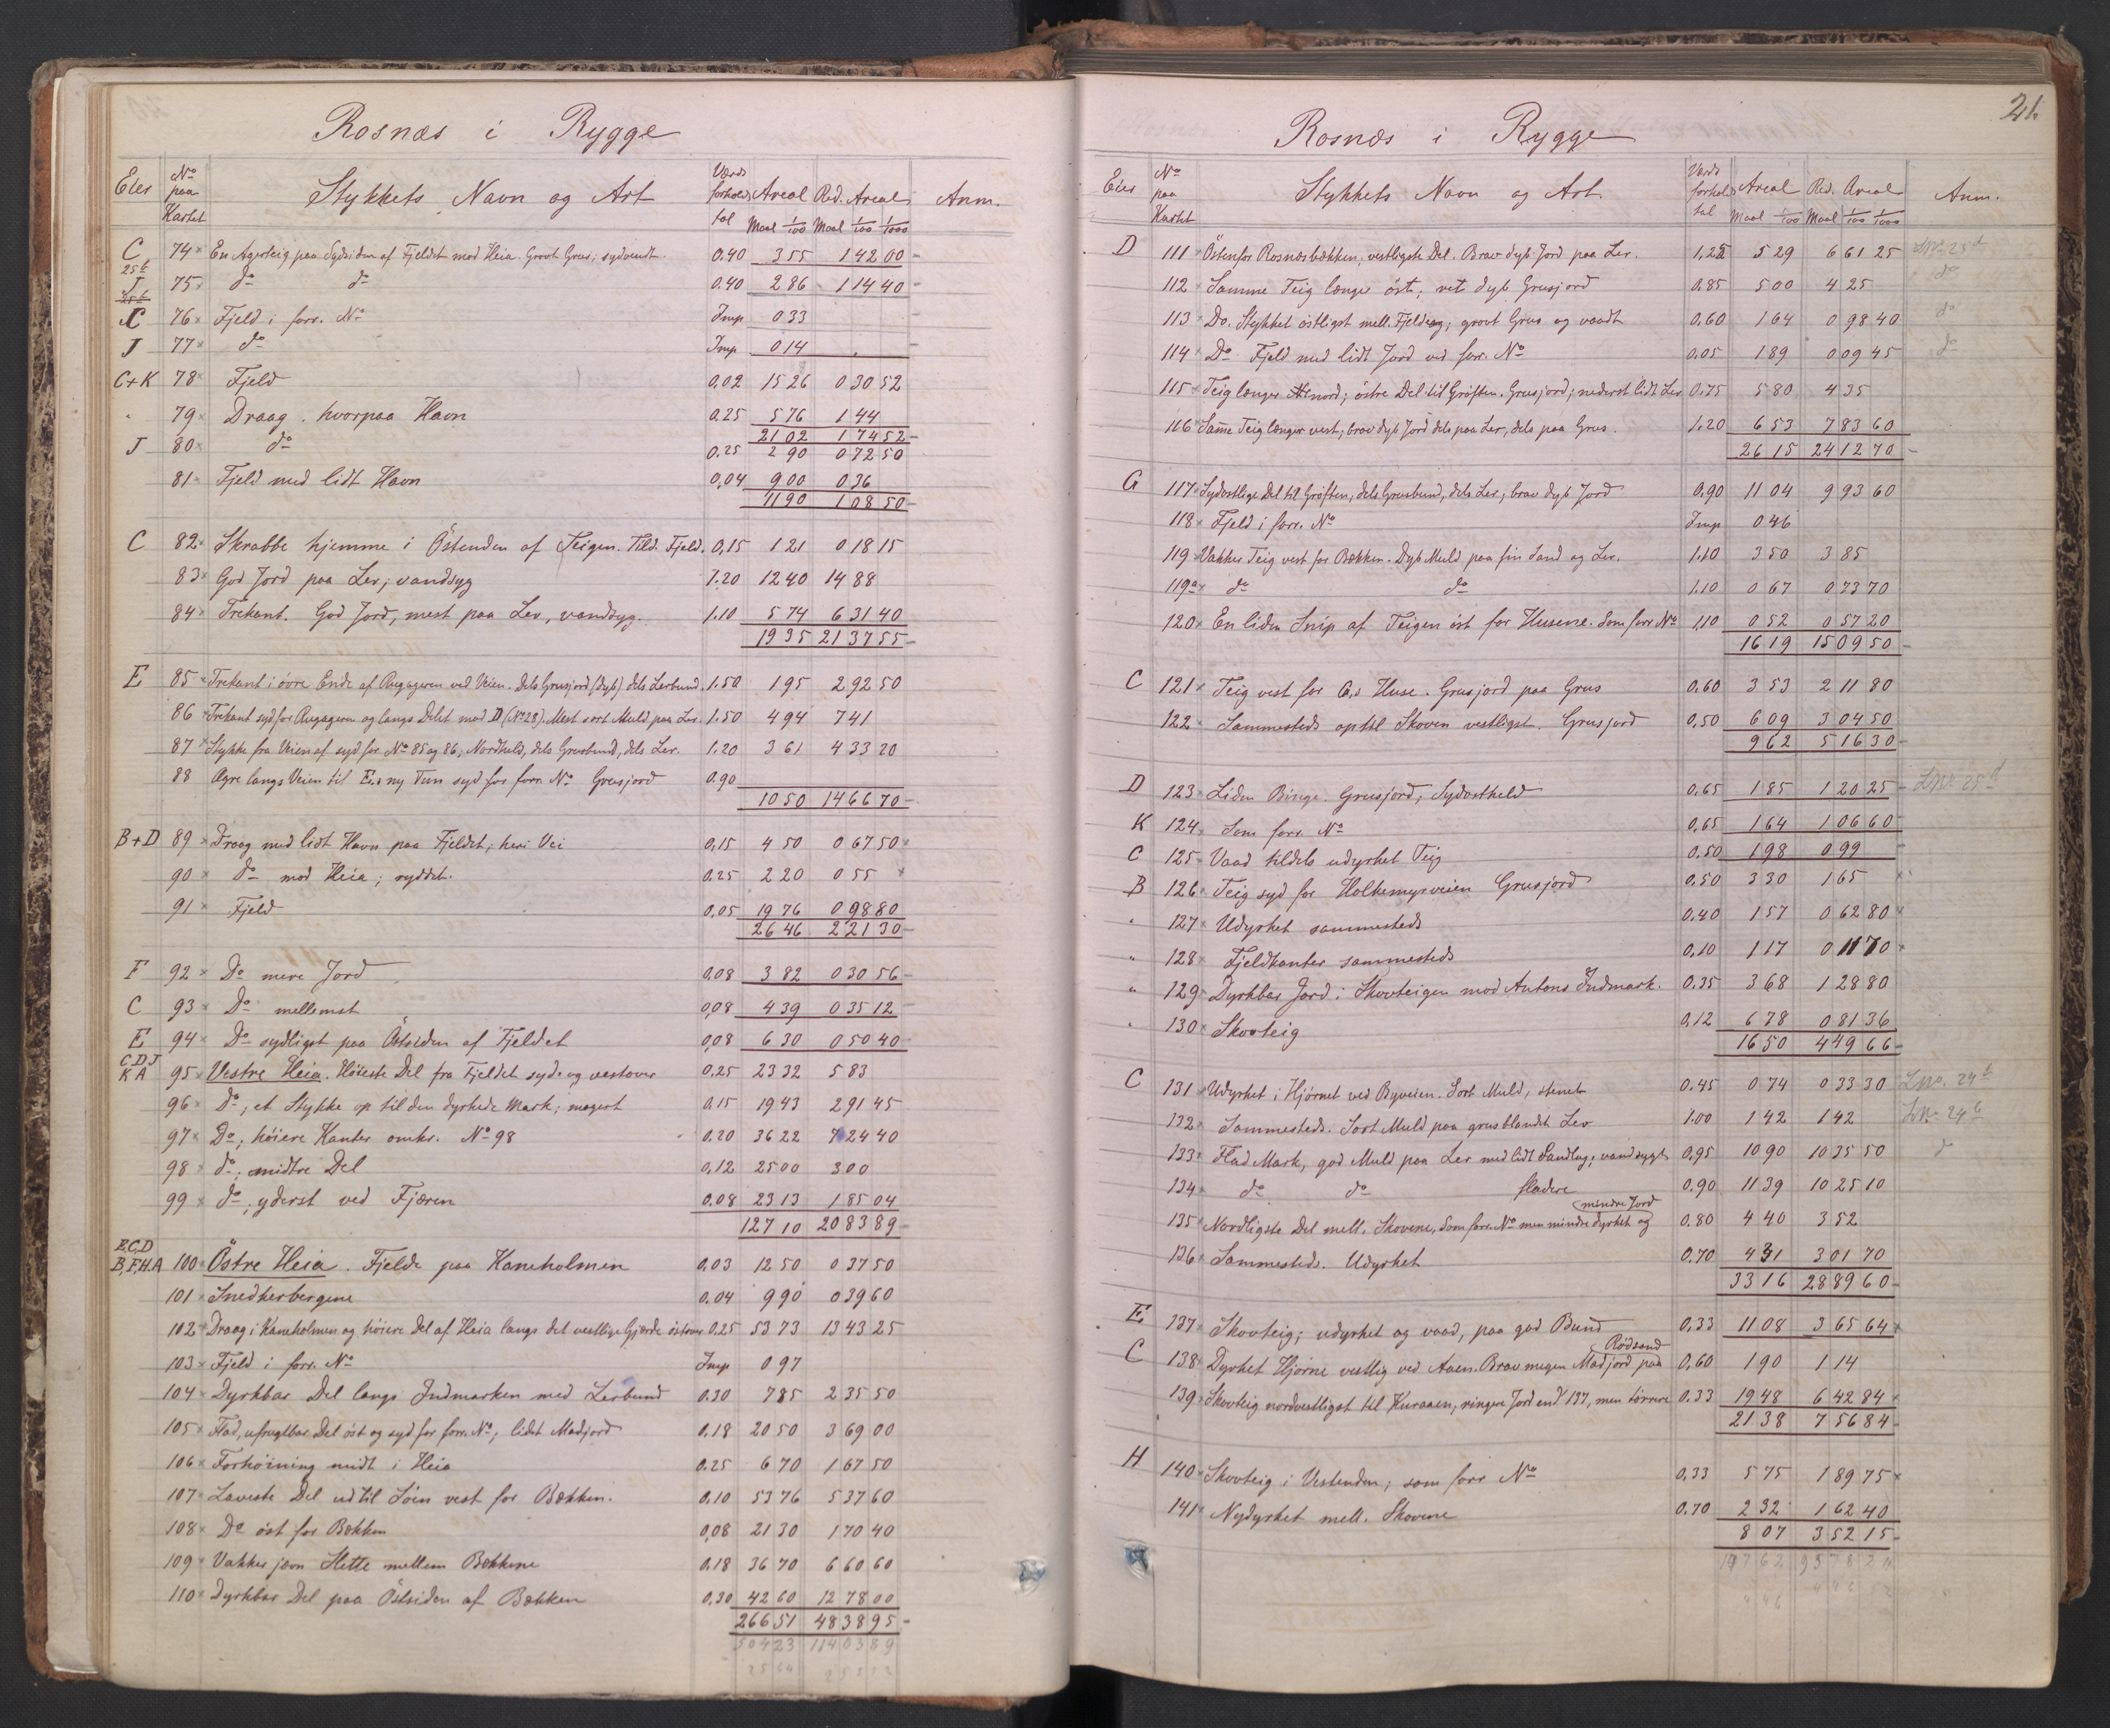 Rosnæs i Rygge
Eier | No paa Kartet | Stykkets Navn og Art | Værdsforholdstal | Areal Maal 1/100 | Red. Areal Maal 1/100 1/1000 | Anm.
C 74 En Agerteig paa Sydsiden af Fjeldet mod Heia. Grovt Grus; sydvendt. 0.40 3 55 1 42 00
25 b
J 75 do do 0.40 2 86 1 14 40
C 76 Fjeld i forr. No Imp 0 33
J 77 do Imp 0 14
C+K 78 Fjeld 0,02 15 26 0 30 52
" 79 Draag, hvorpaa Havn 0.25 5 76 1 44
21 02 1 74 52
J 80 do 0.25 2 90 0 72 50
81 Fjeld med lidt Havn 0,04 9 00 0 36
11 90 1 08 50
C 82 Skrabbe hjemme i Östenden af Teigen. Tild. Fjeld. 0,15 1 21 0 18 15
83 God Jord paa Ler; vandsyg 1.20 12 40 14 88
84 Trekant. God Jord, mest paa Ler, vandsyg. 1.10 5 74 6 31 40
19 35 21 37 55
E 85 Trekant i övre Ende af Rugageren ved Veien. Dels Grusjord (dyb) dels Lerbund. 1.50 1 95 2 92 50
86 Trekant syd for Rugageren og langs Delet mod D (No 28). Mest sort Muld paa Ler. 1.50 4 94 7 41
87 Stykke fra Veien af syd for No 85 og 86; Nordheld, dels Grusbund, dels Ler. 1.20 3 61 4 33 20
88 Agre langs Veien til E.s ny Tun syd for forr. No Grusjord 0.90
10 50 14 66 70
B+D 89 Draag med lidt Havn paa Fjeldet; heri Vei 0,15 4 50 0 67 50
90 do mod Heia; ryddet. 0.25 2 20 0 55
91 Fjeld 0,05 19 76 0 98 80
26 46 2 21 30
F 92 Do mere Jord 0,08 3 82 0 30 56
C 93 Do mellemst 0,08 4 39 0 35 12
E 94 Do sydligst paa Östsiden af Fjeldet 0,08 6 30 0 50 40
C,D,J
K A 95 Vestre Heia. Höieste Del fra Fjeldet syd og vestover 0.25 23 32 5 83
96 Do, et Stykke op til den dyrkede Mark; magert 0.15 19 43 2 91 45
97 Do; höiere Kanter omkr. No 98 0.20 36 22 7 24 40
98 do; midtre Del 0,12 25 00 3 00
99 do; yderst ved Fjæren 0.08 23 13 1 85 04
127 10 20 83 89
E,C,D
B,F,H,A 100 Östre Heia. Fjelde paa Kaneholmen 0.03 12 50 0 37 50
101 Snedkerbergene 0.04 9 90 0 39 60
102 Draag i Kaneholmen og höiere Del af Heia langs det vestlige Gjærde östover 0.25 53 73 13 43 25
103 Fjeld i forr. No Imp 0 97
104 Dyrkbar Del langs Indmarken med Lerbund 0.30 7 85 2 35 50
105 Flad, ufrugtbar Del öst og syd for forr. No; lidet Madjord 0,18 20 50 3 69 00
106 Forhöining midt i Heia 0.25 6 70 1 67 50
107 Laveste Del ud til Söen vest for Bækken. 0,10 53 76 5 37 60
108 Do öst for Bækken 0,08 21 30 1 70 40
109 Vakker jævn Slette mellem Bækkene 0.18 36 70 6 60 60
110 Dyrkbar Del paa Östsiden af Bækken 0.30 42 60 12 78 00
266 51 48 38 95
504 23 114 03 89
21.
Rosnæs i Rygge
Eier | No paa Kartet | Stykkets Navn og Art. | Værdsforholdstal | Areal Maal 1/100 | Red. Areal Maal 1/100 1/1000 | Anm.
D 111 Östenfor Rosnæsbækken, vestligste Del. Brav dyb Jord paa Ler. 1,25 5 29 6 61 25 LNo 25 d
112 Samme Teig længer öst; vet dyb Grusjord 0.85 5 00 4 25 do
113 Do. Stykket östligst mell. Fjeldeog; grovt Grus og vaadt 0,60 1 64 0 98 40 do
114 Do Fjeld med lidt Jord ved forr. No 0.05 1 89 0 09 45 do
115 Teig længer nord; östre Del til Gröften. Grusjord; nederst lidt Ler 0.75 5 80 4 35
116 Samme Teig længer vest; brav dyb Jord dels paa Ler, dels paa Grus. 1.20 6 53 7 83 60
26 15 24 12 70
G 117 Sydostlige Del til Gröften; dels Grusbund, dels Ler; brav dyb Jord 0.90 11 04 9 93 60
118 Fjeld i forr. No Imp 0 46
119 Vakker Teig vest for Bækken. Dyb Muld paa fin Sand og Ler. 1.10 3 50 3 85
119a do do 1.10 0 67 0 73 70
120 En liden Snip af Teigen öst for Husene. Som forr. No 1,10 0 52 0 57 20
16 19 15 09 50
C 121 Teig vest for G.s Huse. Grusjord paa Grus 0,60 3 53 2 11 80
122 Sammesteds op til Skoven vestligst. Grusjord 0,50 6 09 3 04 50
9 62 5 16 30
D 123 Liden Binge. Grusjord; Sydostheld 0.65 1 85 1 20 25 LNo 25 d
K 124 Som forr. No 0.65 1 64 1 06 60
C 125 Vaad tildels udyrket Teig 0.50 1 98 0 99
B 126 Teig syd for Holkemyrveien Grusjord 0.50 3 30 1 65
" 127 Udyrket sammesteds 0.40 1 57 0 62 80
" 128 Fjeldkanter sammesteds 0,10 1 17 0 11 70
" 129 Dyrkbar Jord i Skovteigen mod Antons Indmark. 0.35 3 68 1 28 80
" 130 Skovteig 0,12 6 78 0 81 36
16 50 4 49 66
C 131 Udyrket i Hjörnet ved Byveien. Sort Muld, stenet 0.45 0 74 0 33 30 LNo. 24 b
132 Sammesteds. Sort Muld paa grusblandet Ler 1.00 1 42 1 42 LNo 24 b
133 Flad Mark, god Muld paa Ler med lidt Sandlag; vandsygt 0,95 10 90 10 35 50 d
134 do do fladere 0.90 11 39 10 25 10
135 Nordligste Del mell. Skovene, Som forr. No men mindre dyrket og mindre Jord 0.80 4 40 3 52
136 Sammesteds. Udyrket 0.70 4 31 3 01 70
33 16 28 89 60
E 137 Skovteig; udyrket og vaad, paa god Bund 0,33 11 08 3 65 64
C 138 Dyrket Hjörne vestlig ved Aaen. Brav megen Madjord paa Rödsand 0,60 1 90 1 14
139 Skovteig nordvestligst til Kuraaen; ringere Jord end 137, men törrere 0.33 19 48 6 42 84
21 38 7 56 84
H 140 Skovteig i Vestenden; som forr No 0,33 5 75 1 89 75
141 Nydyrket mell. Skovene 0.70 2 32 1 62 40
8 07 3 52 15